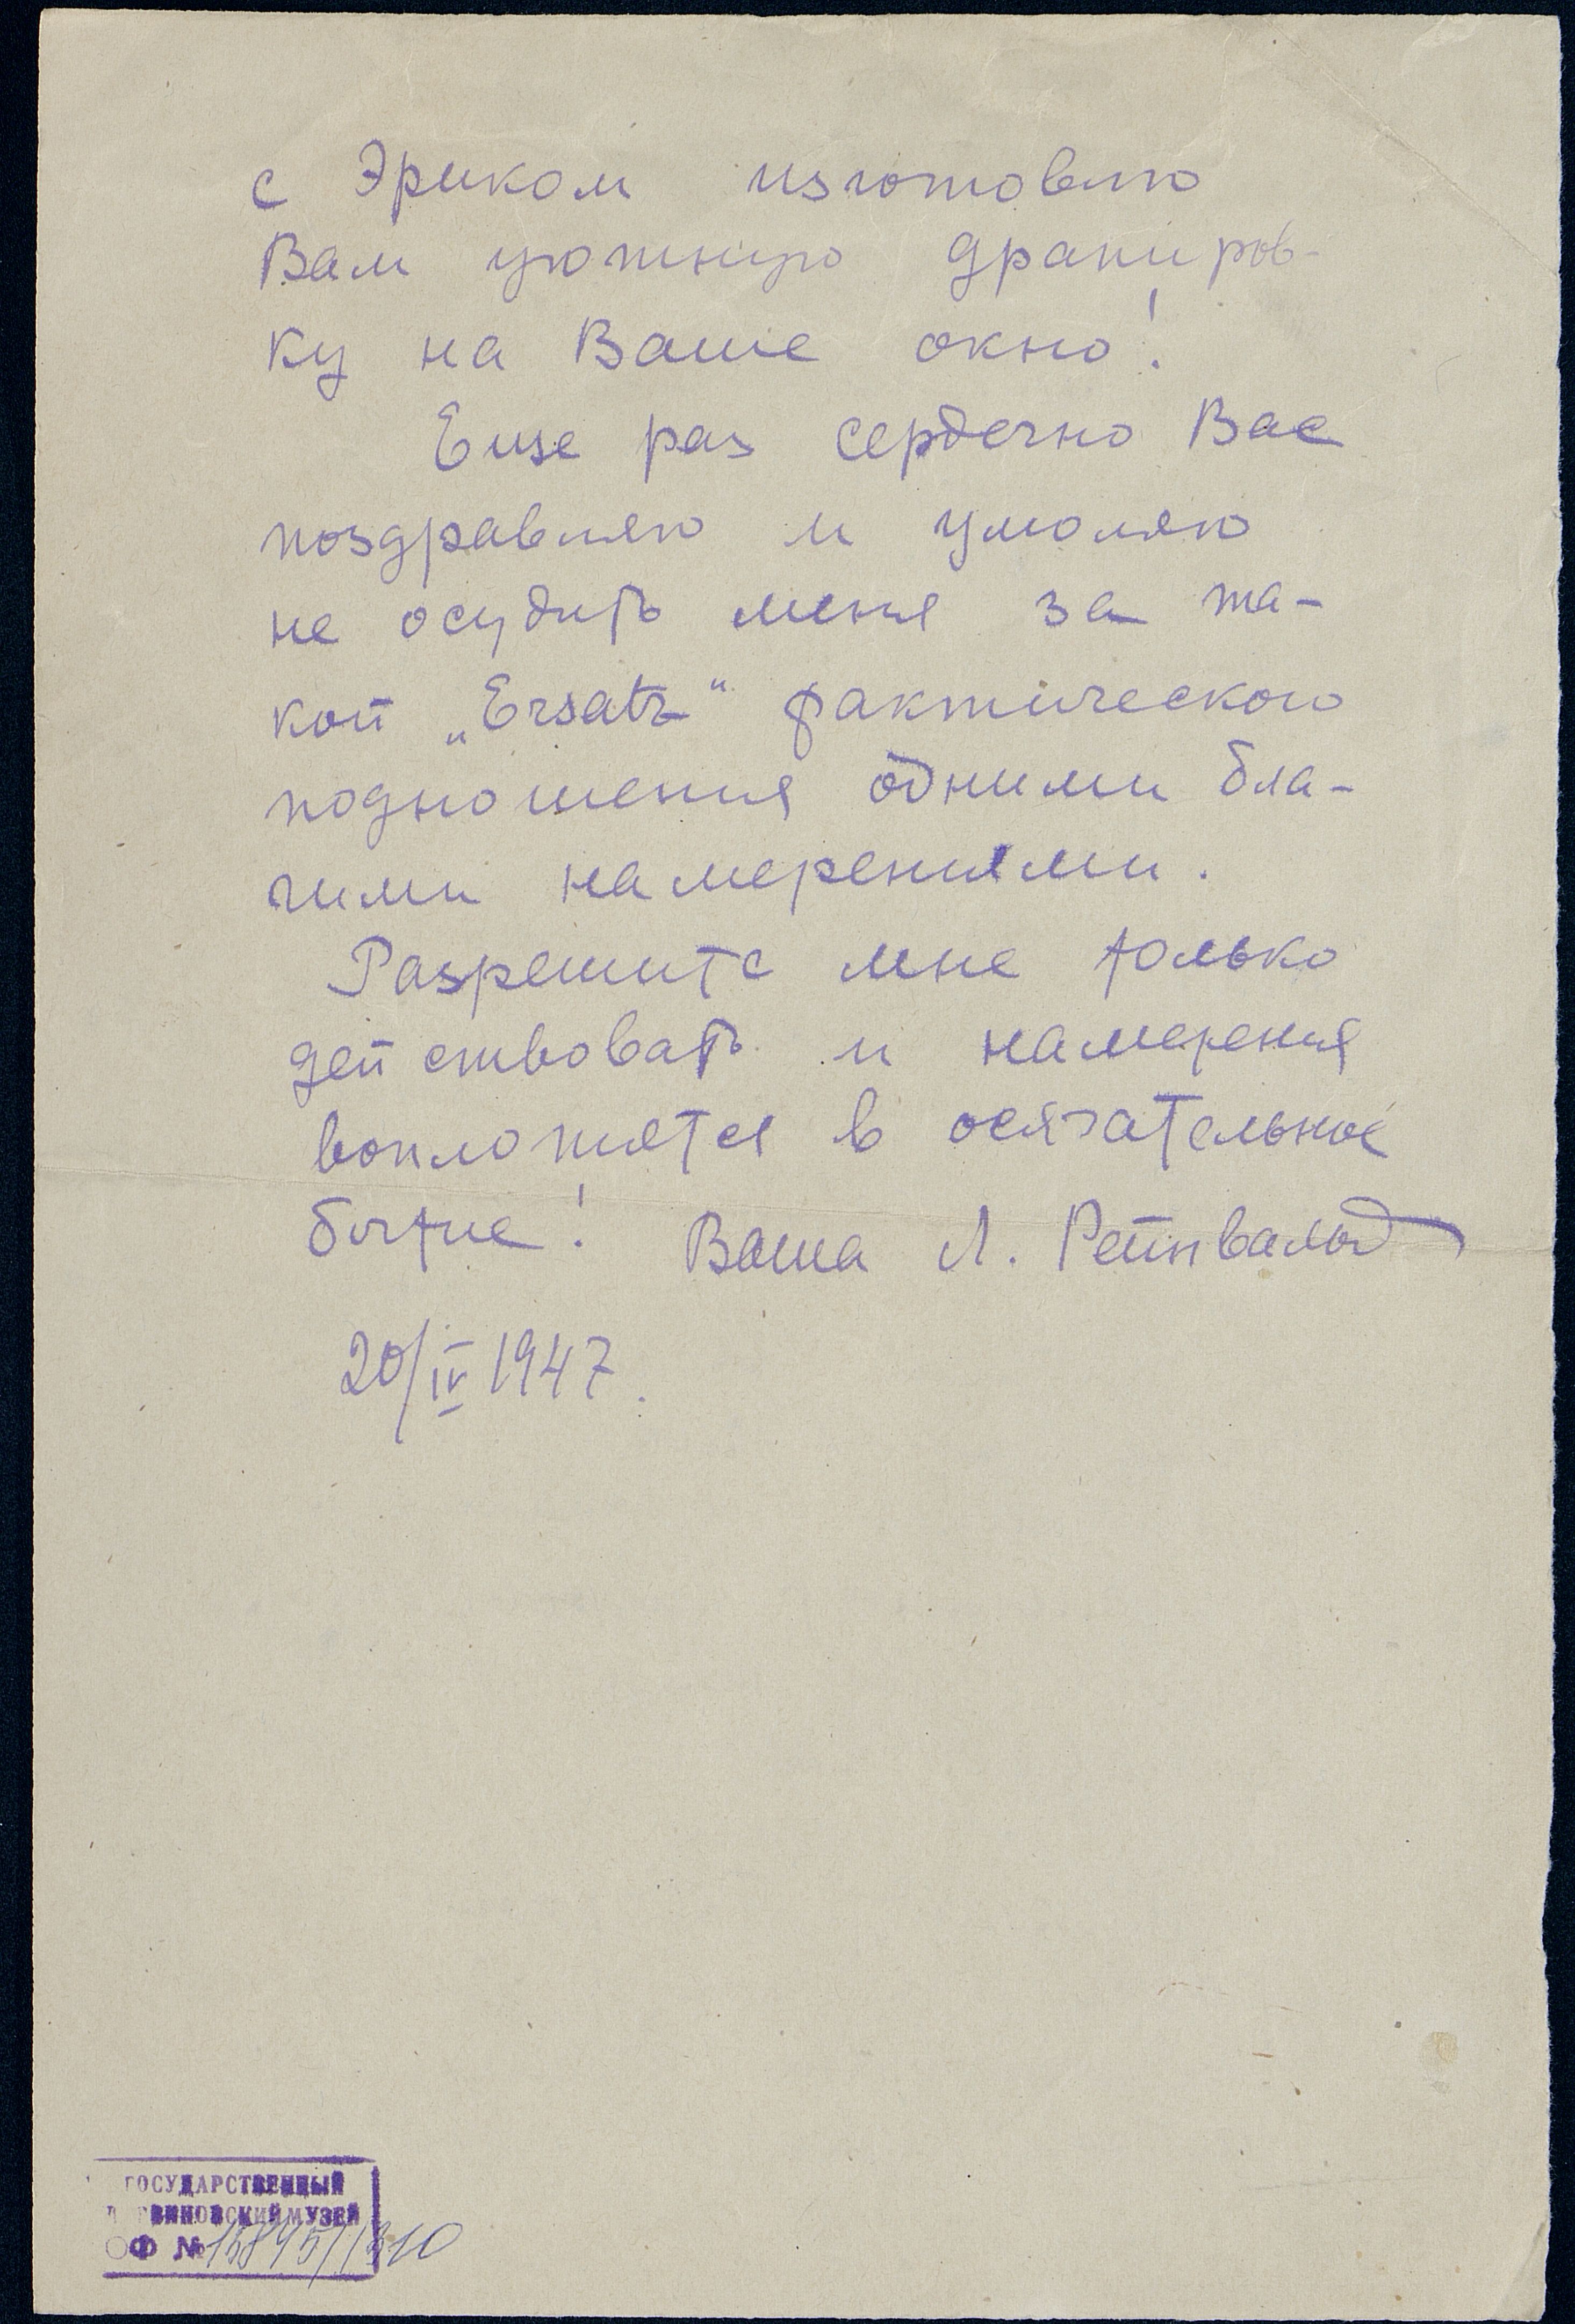 с Эриком изготовлю
Вам уютную драпиров-
ку на Ваше окно!
Еще раз сердечно Вас
поздравляю и умоляю
не осудить меня за та-
кой „Ersatz“ фактического
подношения одними бла-
гими намерениями.
Разрешите мне только
действовать и намерения
воплотятся в осязательное
бытие! Ваша Л. Рейнвальд
20/IV 1947.
ГОСУДАРСТВЕННЫЙ
ДАРВИНОВСКИЙ МУЗЕЙ
ОФ №